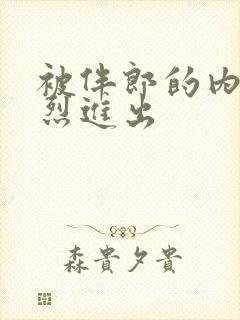 被伴郎的内
烈进出
森貴夕貴